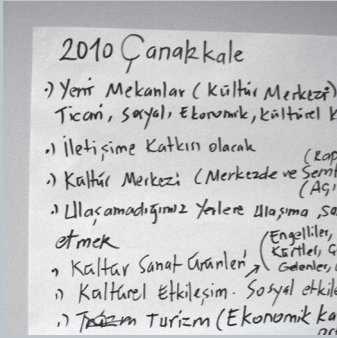 2010 Çanakkale
·) Yeni Mekanlar (Kültür Merkezi)
Ticari, Sosyal, Ekonomik, kültürel K
·) İletişime Katkısı olacak
(Kap
·) Kültür Merkezi (Merkezde ve Semt
(Açı
·) Ulaşamadığımız Yerlere ulaşıma, sa
etmek
(Engelliler,
Kürtler, G
Gelenler,
·) Kültür Sanat Ürünleri
·) Kültürel Etkileşim. Sosyal etkile
·) Turizm (Ekonomik Ka